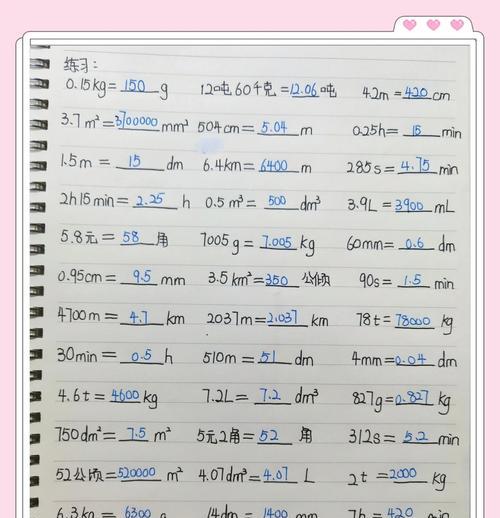 练习:
0.15kg=150g 12吨60千克=12.06吨 4.2m=420cm
3.7m²=3700000mm² 504cm=5.04m 0.25h=15min
1.5m=15dm 6.4km=6400m 285s=4.75min
2h15min=2.25h 0.5m³=500dm³ 3.9L=3900mL
5.8元=58角 7005g=7.005kg 60mm=0.6dm
0.95cm=9.5mm 3.5km²=350公顷 90s=1.5min
4700m=4.7km 2037m=2.037km 78t=78000kg
30min=0.5h 510m=51dm 4mm=0.04dm
4.6t=4600kg 7.2L=7.2dm³ 827g=0.827kg
750dm²=7.5m² 5元2角=52角 312s=5.2min
52公顷=520000m² 4.07dm³=4.07L 2t=2000kg
6.3kg=6300g 14dm=1400mm 7h=420min